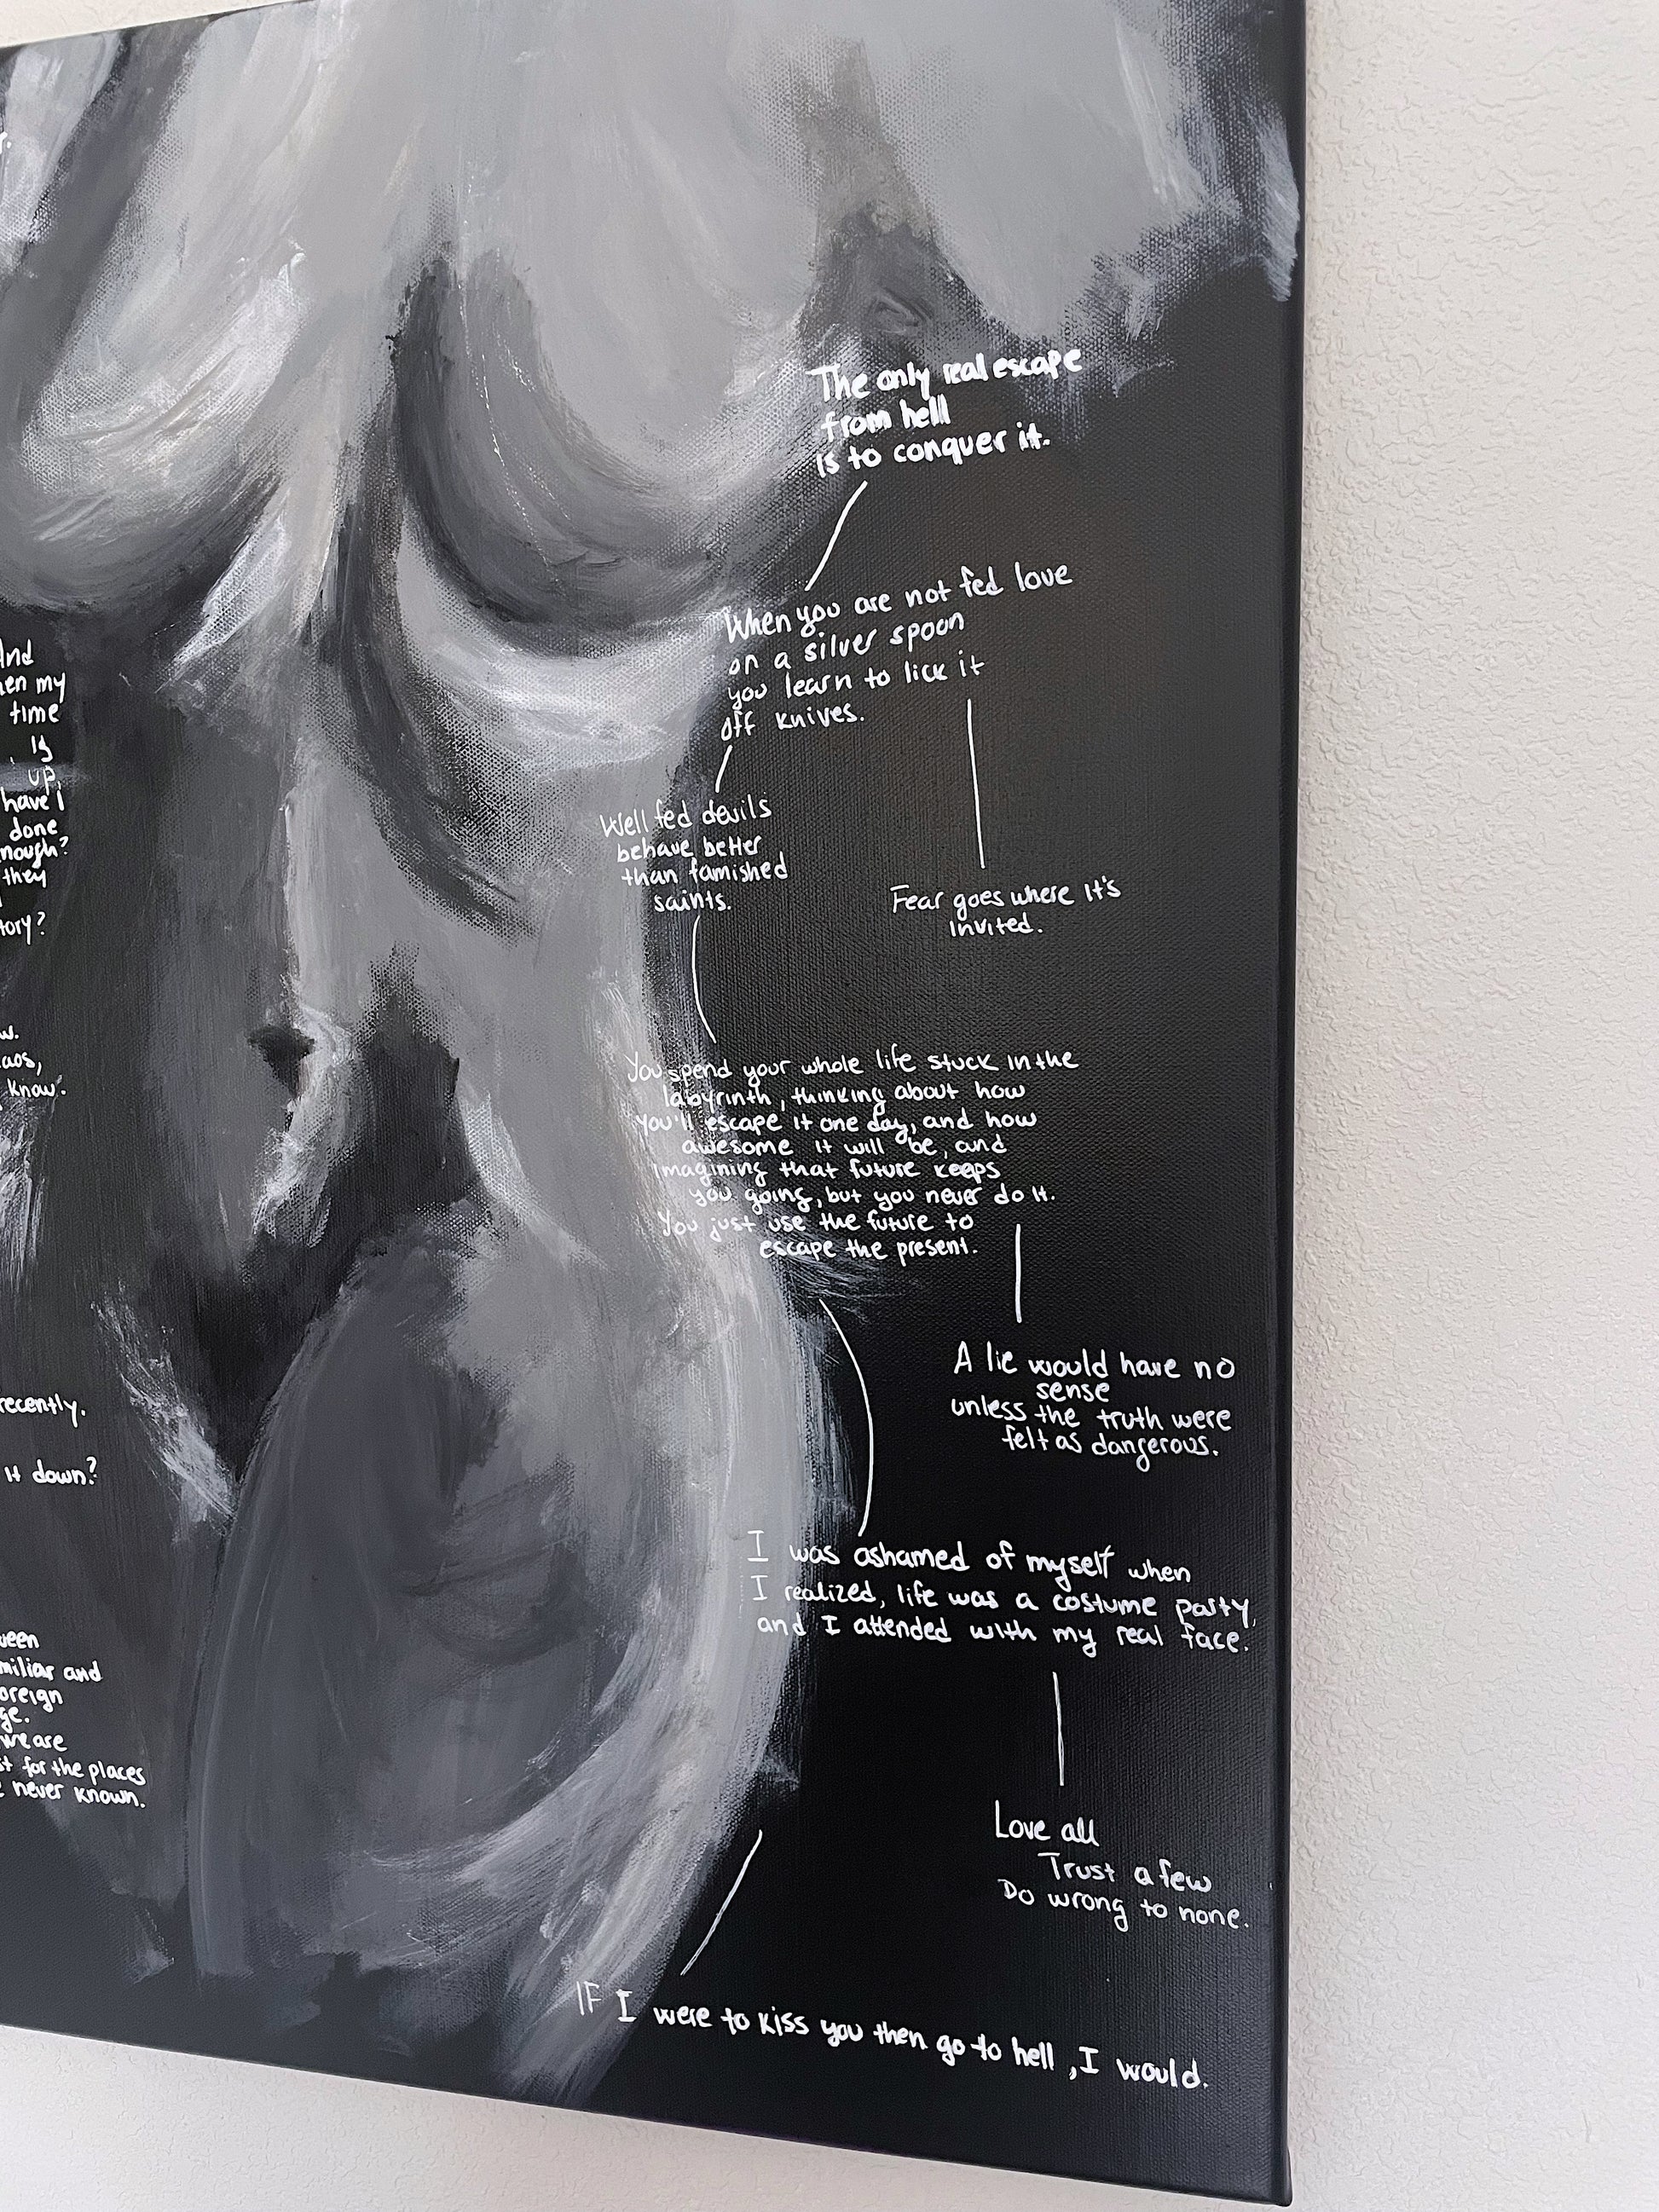 r.
And
en my
time
Is
up,
have I
done
nough?
they
tory?
w.
aos,
know.
recently.
it down?
ween
miliar and
oreign
ge.
we are
st for the places
e never known.
The only real escape
from hell
is to conquer it.
When you are not fed love
on a silver spoon
you learn to lick it
off knives.
Well fed devils
behave better
than famished
saints.
Fear goes where it's
invited.
You spend your whole life stuck in the
labyrinth, thinking about how
you'll escape it one day, and how
awesome it will be, and
imagining that future keeps
you going, but you never do it.
You just use the future to
escape the present.
A lie would have no
sense
unless the truth were
felt as dangerous.
I was ashamed of myself when
I realized, life was a costume party,
and I attended with my real face.
Love all
Trust a few
Do wrong to none.
IF I were to kiss you then go to hell, I would.